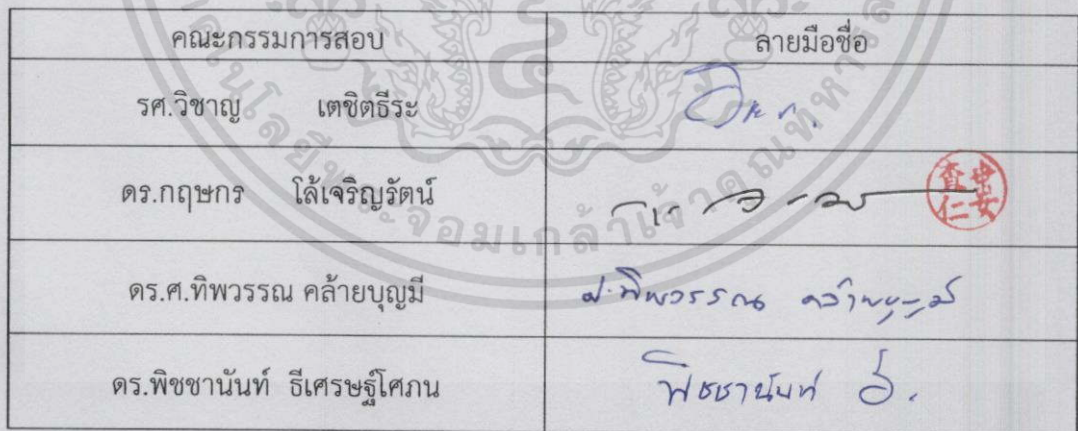 คณะกรรมการสอบ ลายมือชื่อ
รศ.วิชาญ เตชิตธีระ
ดร.กฤษกร โล้เจริญรัตน์
ดร.ศ.ทิพวรรณ คล้ายบุญมี ศ.ทิพวรรณ คล้ายบุญมี
ดร.พิชชานันท์ ธีเศรษฐ์โศภน พิชชานันท์ ธ.
จอมเกล้าเจ้าคุณทหาร